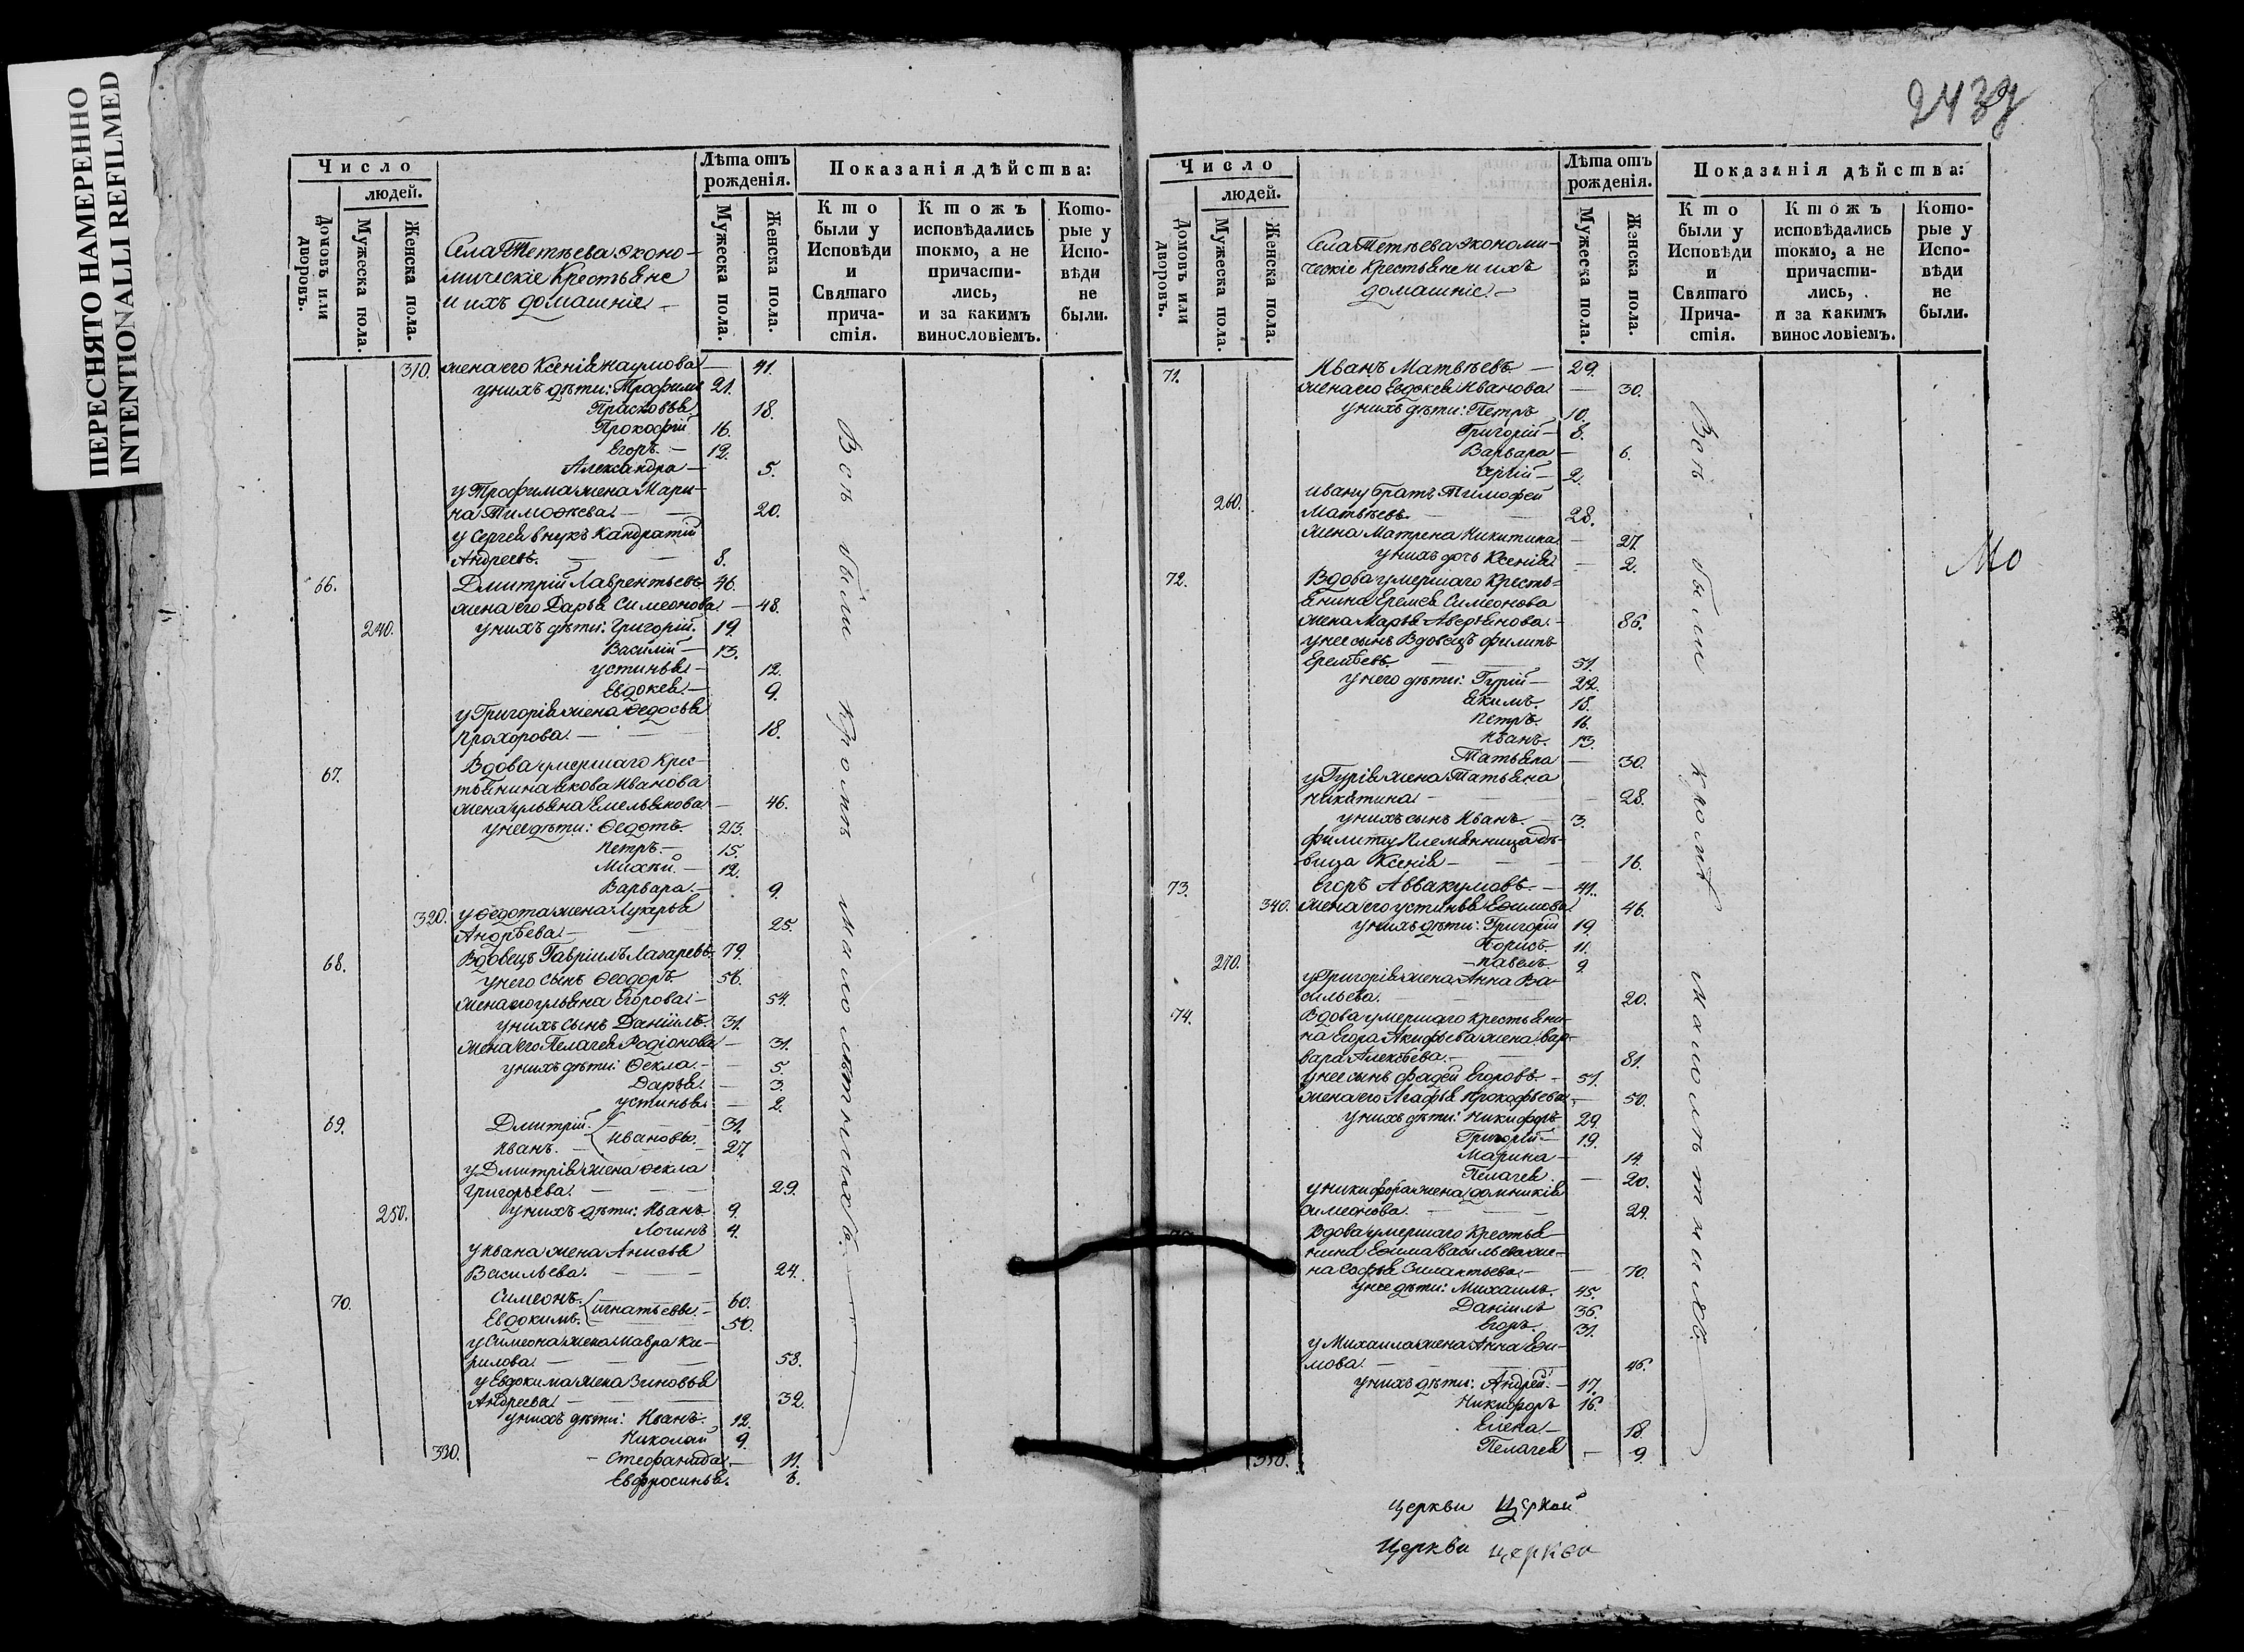 ПЕРЕСНЯТО НАМЕРЕННО
INTENTIONALLI REFILMED
Число
людей.
Домовъ или дворовъ.
Мужеска пола.
Женска пола.
Села Тетѣева эконо-
мическіе Крестьяне
и ихъ домашніе
Лѣта отъ рожденія.
Мужеска пола.
Женска пола.
Показанія дѣйства:
Кто были у Исповѣди и Святаго прича-стія.
Ктожъ исповѣдались токмо, а не причасти-лись, и за какимъ винословіемъ.
Кото-рые у Испо-вѣди не были.
310. жена его Ксенія Наумова — 41.
у нихъ дѣти: Трофимъ 21.
Прасковья 18.
Прокофій 16.
Егоръ — 12.
Александра — 5.
у Трофима жена Мари-
на Тимофѣева — 20.
у Сергея внукъ Кандратій
Андреевъ — 8.
66. Дмитрій Лаврентьевъ 46.
жена его Дарья Симеонова — 48.
240. у нихъ дѣти: Григорій 19.
Василій — 13.
Устинья — 12.
Евдокея — 9.
у Григорія жена Ѳедосья
Прохорова — 18.
67. Вдова умершаго Крес-
тьянина Якова Иванова
жена Ульяна Емельянова — 46.
у нее дѣти: Ѳедотъ 23.
Петръ — 15.
Михѣй — 12.
Варвара — 9.
320. у Ѳедота жена Лукерья
Андрѣева — 25.
68. Вдовецъ Гавріилъ Лазаревъ 79.
у него сынъ Ѳеодоръ 56.
жена его Ульяна Егорова — 54.
у нихъ сынъ Даніилъ 31.
жена его Пелагея Родіонова — 31.
у нихъ дѣти: Ѳекла — 5.
Дарья — 3.
Устинья — 2.
69. Дмитрій 31.
Иванъ Ивановы 27.
у Дмитрія жена Ѳекла
Григорьева — 29.
250. у нихъ дѣти: Иванъ 9.
Логинъ 4.
у Ивана жена Анисья
Васильева — 24.
70. Симеонъ 60.
Евдокимъ Игнатьевы 50.
у Симеона жена Мавра Ки-
рилова — 58.
у Евдокима жена Зиновья
Андреева — 32.
у нихъ дѣти: Иванъ 12.
Николай 9.
330. Стефанида — 11.
Евфросинья 8.
Всѣ были кромѣ малолѣтнихъ.
243
Число
людей.
Домовъ или дворовъ.
Мужеска пола.
Женска пола.
Села Тетѣева экономи-
ческіе Крестьяне и ихъ
домашніе
Лѣта отъ рожденія.
Мужеска пола.
Женска пола.
Показанія дѣйства:
Кто были у Исповѣди и Святаго Прича-стія.
Ктожъ исповѣдались токмо, а не причасти-лись, и за какимъ винословіемъ.
Кото-рые у Испо-вѣди не были.
71. Иванъ Матвѣевъ — 29.
жена его Евдокея Иванова — 30.
у нихъ дѣти: Петръ 10.
Григорій — 8.
Варвара — 6.
Сергій — 2.
Ивану братъ Тимофей
260. Матвѣевъ — 28.
жена Матрена Никитина — 27.
у нихъ дочь Ксенія — 2.
72. Вдова умершаго Кресть-
янина Еремея Симеонова
жена Марья Аверьянова — 86.
у нее сынъ Вдовецъ Филипъ
Еремѣевъ — 51.
у него дѣти: Гурій — 22.
Екимъ 18.
Петръ 16.
Иванъ 13.
Татьяна — 30.
у Гурія жена Татьяна
Никитина — 28.
у нихъ сынъ Иванъ — 3.
Филипу племянница дѣ-
вица Ксенія — 16.
73. Егоръ Аввакумовъ — 41.
340. жена его Устинья Ефимова 46.
у нихъ дѣти: Григорій 19.
Борисъ 11.
270. Павелъ 9.
у Григорія жена Анна Ва-
сильева 20.
74. Вдова умершаго Крестьяни-
на Егора Акифьева жена Вар-
вара Алексѣева — 81.
у нее сынъ Фадей Егоровъ — 51.
жена его Агафья Прокофьева — 50.
у нихъ дѣти: Никифоръ 29.
Григорій — 19.
Марина — 14.
Пелагея — 20.
у Никифора жена Домникія
Симеонова 24.
Вдова умершаго Крестья
нина Ефима Васильева же-
на Софья Филактьева — 70.
у нее дѣти: Михаилъ 45.
Даніилъ 36.
Егоръ 31.
у Михаила жена Анна Ефи-
мова 46.
у нихъ дѣти: Андрей — 17.
Никифоръ 16.
Елена — 18.
350. Пелагея — 9.
Всѣ были кромѣ малолѣтнихъ.
Мо
церкви Церкви
Церкви церкви